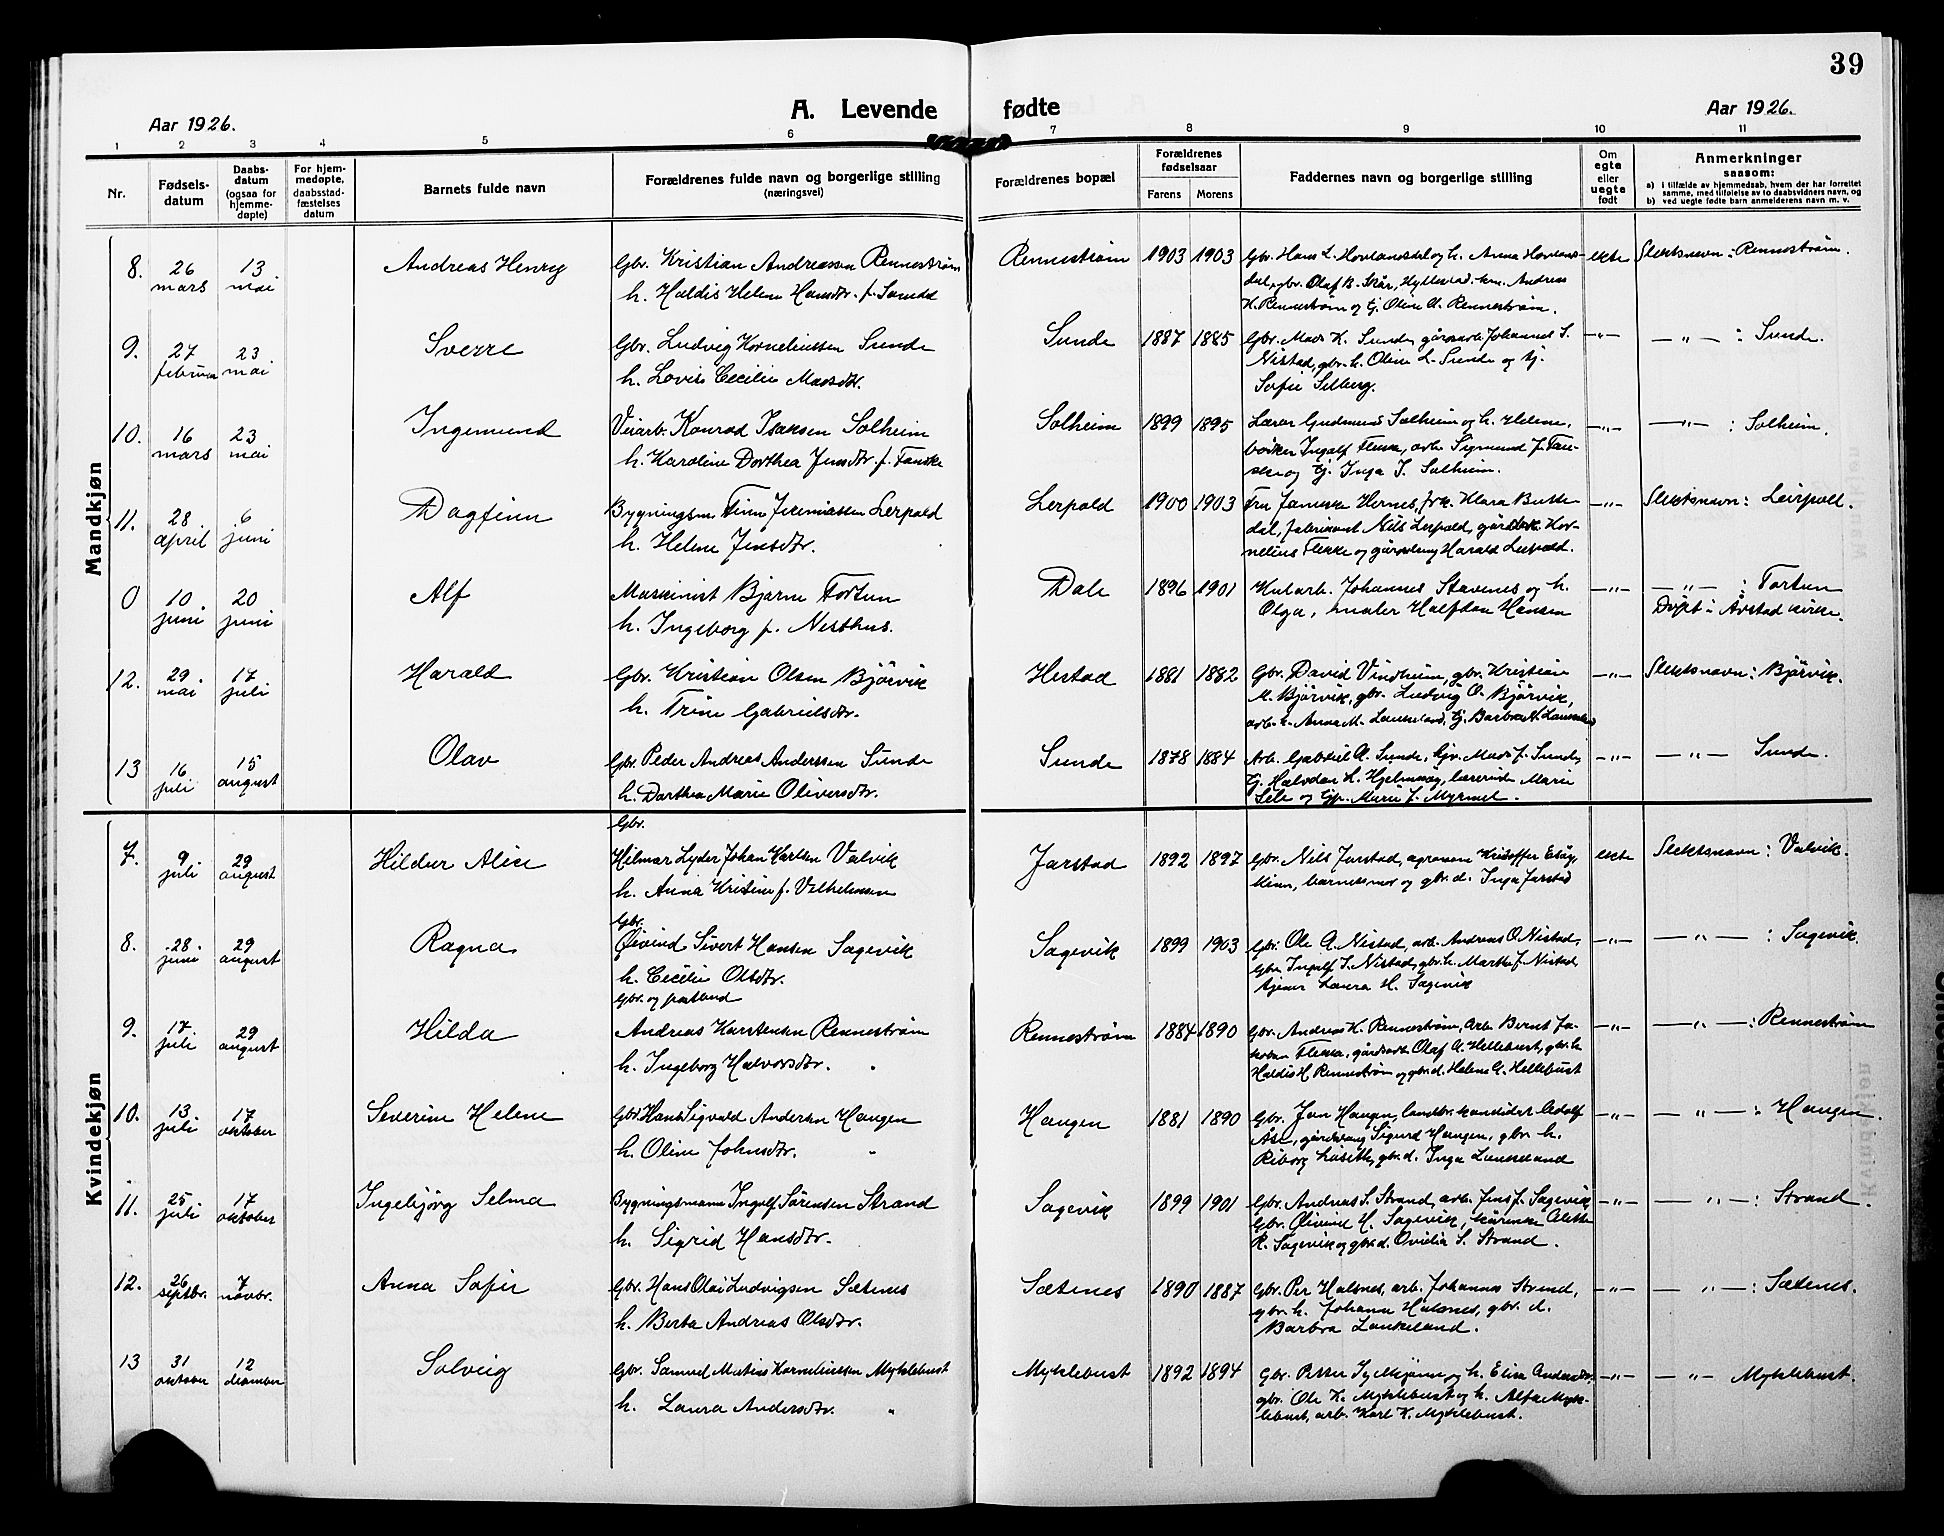 39
A. Levende fødte
Aar 1926.
Aar 1926.
1 2 3 4 5 6 7 8 9 10 11
Nr.
Fødsels-
datum
Daabs-
datum
(ogsaa for
hjemme-
døpte)
For hjem-
medøpte,
daabsstad-
fæstelses
datum
Barnets fulde navn
Forældrenes fulde navn og borgerlige stilling
(næringsvei)
Forældrenes bopæl
Forældrenes
fødselsaar
Farens Morens
Faddernes navn og borgerlige stilling
Om
egte
eller
uegte
født
Anmerkninger
saasom:
a) i tilfælde av hjemmedaab, hvem der har forrettet
samme, med tilføielse av to daabsvidners navn, og
b) ved uegte fødte barn anmelderens navn m. v.
Mandkjøn
8. 26 mars 13 mai Andreas Henry
Gbr. Kristian Andreassen Rennestrøm
h. Haldis Helene Hansdtr. f.
Rennestrøm 1903 1903
Gbr. Hans L. Hovlandsdal og h. Anna Hovlands-
dal, gbr. Olaf B. Skår, Hyllestad, Andreas
K. Rennestrøm og tj. Oline A. Rennestrøm.
ekte Slektsnavn: Rennestrøm.
9. 27 februar 23 mai Sverre
Gbr. Ludvig Korneliussen Sunde
h. Lovise Cecilie Madsdtr.
Sunde 1887 1885
Gbr. Mads K. Sunde, gårdarb. Johannes S.
Nistad, gbr. h. Oline L. Sunde og tj.
Sofie Selberg.
—„— —„— : Sunde.
10. 16 mars 23 mai Ingemund
Veiarb. Konrad Isaksen Solheim
h. Karoline Dorthea Jensdtr. f. Fanske
Solheim 1899 1895
Lærer Gudmund Solheim og h. Helene,
bøcker Ingolf Flekke, arb. Sigmund J. Fan-
ske og tj. Inga I. Solheim.
—„— —„— : Solheim.
11. 28 april 6 juni Dagfinn
Bygningsm. Finn Jeremiassen Lerpold
h. Helene Jensdtr.
Lerpold 1900 1903
Fru Jannike Hernes, frk. Klara Butte-
dal, fabrikant Nils Lerpold, gårdbr. Kor-
nelius Flekke og Harald Leirpold.
—„— Slektsnavn: Leirpoll.
0 10 juni 20 juni Alf
Maskinist Bjarne Fortun
h. Ingeborg f. Nesthus.
Dale 1896 1901
Johannes Stavenes og h.
Olga, maler Halfdan Hansen
—„— —„— : Fortun
Døpt i Årstad kirke.
12. 29 mai 17 juli Harald
Gbr. Kristian Olsen Bjørvik
h. Trine Gabrielsdtr.
Hestad 1881 1882
Gbr. David Vindheim, gbr. Kristian
M. Bjørvik, gbr. Ludvig O. Bjørvik,
arb. h. Anna M. Laukeland, tj. Barbra
—„— Slektsnavn: Bjørvik.
13 16 juli 15 august Olav
Gbr. Peder Andreas Anderssen Sunde
h. Dorthea Marie Oliversdtr.
Sunde 1878 1884
Arb. Gabriel A. Sunde, Mads J. Sunde,
tj. Halvdan H. Hjelmaag, lærerinde Marie
Lele og Marie J. Myrmel.
—„— —„— Sunde.
Kvindekjøn
7. 9 juli 29 august Hildur Alice
Gbr.
Hilmar Lyder Johan Karlsen Valvik
h. Anna Kristine f. Vilhelmsen
Jarstad 1892 1897
Gbr. Nils Jarstad, agronom Kristoffer
barnets mor og gbr. d. Inga Jarstad
ekte Slektsnavn: Valvik.
8. 28 juni 29 august Ragna
Gbr.
Øivind Sivert Hansen Sagevik
h. Cecilie Olsdtr.
Sagevik 1899 1903
Gbr. Ole A. Nistad, arb. Andreas O. Nistad,
Gbr. Ingolf I. Nistad, gbr. h. Marthe J. Nistad,
Laura H. Sagevik
—„— —„— : Sagevik.
9. 17 juli 29 august Hilda
Gbr. og postbud
Andreas Karstensen Rennestrøm
h. Ingeborg Halvorsdtr.
Rennestrøm 1884 1890
Gbr. Andreas K. Rennestrøm, Arb. Bernt Ja-
kobsen Flekke, gårdarb. Olaf A. Hellebust, gbr. h.
Haldis H. Rennestrøm og gbr. d. Helene A. Hellebust
—„— —„— : Rennestrøm
10. 13 juli 17 oktober Severine Helene
Gbr. Hans Sigvald Andersen Haugen
h. Oline Johnsdtr. „
Haugen 1881 1890
Gbr. Jon Haugen, landbr. kandidat Adolf
Åse, Sigurd Haugen, gbr. h.
Riborg gbr. d. Inga Laukeland
—„— —„— : Haugen.
11. 25 juli 17 oktober Ingebjørg Selma
Bygningsmann Ingolf Sørensen Strand
h. Sigrid Hansdtr.
Sagevik 1899 1901
Gbr. Andreas S. Strand, arb. Jens J. Sagevik
Gbr. Øivind H. Sagevik, Alette
R. Sagevik og gbr. d. Ovidia S. Strand.
—„— —„— : Strand.
12. 26 septbr. 7 novbr. Anna Sofie
Gbr. Hans Olai Ludvigsen Sætenes
h. Berta Andreas Olsdtr.
Sætenes 1890 1887
Gbr. Per Halsnes, arb. Johannes Strand,
gbr. h. Johanne Halsnes, gbr. d.
Barbra Laukeland.
—„— —„— : Sætenes.
13 31 oktober 12 desember Solveig
Gbr. Samuel Matias Korneliussen Myklebust
h. Laura Andersdtr. „
Myklebust 1892 1894
Gbr. og h. Elise Andersdtr.
gbr. Ole K. Myklebust og h. Alfa Myk-
lebust, arb. Karl K. Myklebust.
—„— —„— Myklebust.